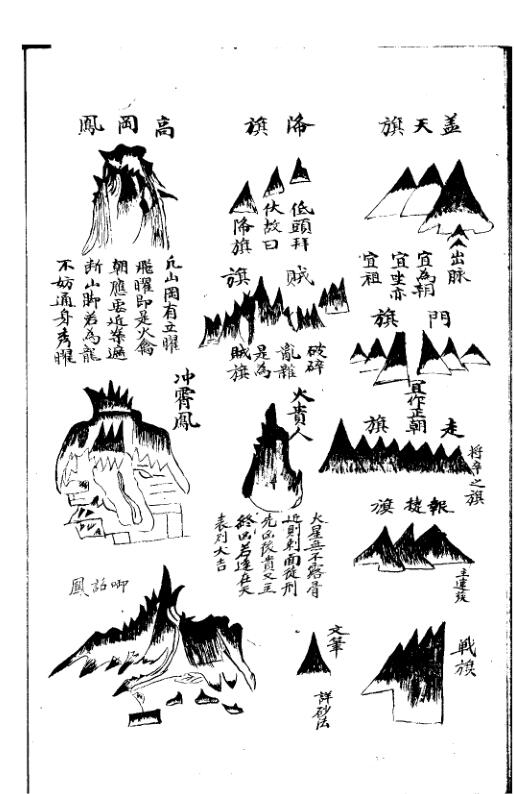 蓋天旗
出脈
宜為朝
宜坐亦
宜祖
門旗
宜作正朝
走旗
将卒之旗
報捷旗
主連發
戰旗
降旗
低頭拜
伏故曰
降旗
賊旗
破碎
亂雜
是為
賊旗
火貴人
火星無不露骨
近則剌面徒刑
先凶後貴又主
終凶若遠在天
表列大吉
文筆
詳砂法
高岡鳳
凡山岡有立曜
飛曜即是火禽
朝應要近葉遮
断山脚若為龍
不妨通身秀曜
冲霄鳳
啣詔鳳